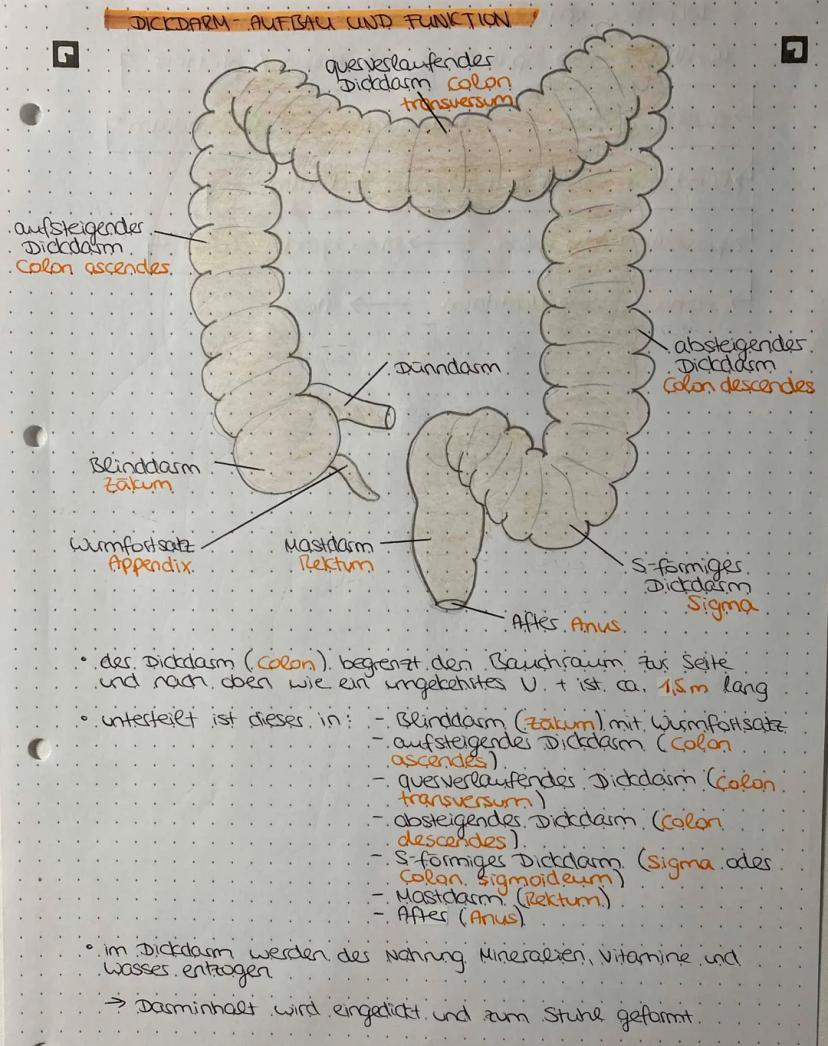 DICKDARM - AUFBAU UND FUNKTION
querverlaufender
Dickdarm Colon
transversum
aufsteigender
Dickdarm
Colon ascendes
Dünndarm
absteigender
Dickdarm
Colon descendes
Blinddarm
Zäkum
Wurmfortsatz
Appendix
Mastdarm
Rektum
S-förmiger
Dickdarm
Sigma
After Anus
• der Dickdarm (Colon) begrenzt den Bauchraum zur Seite
und nach oben wie ein umgekehrtes U + ist ca. 1,5m lang
• unterteilt ist dieser in: - Blinddarm (Zäkum) mit Wurmfortsatz
- aufsteigender Dickdarm (Colon
ascendes)
- querverlaufender Dickdarm (Colon
transversum)
- absteigender Dickdarm (Colon
descendes)
- S-förmiger Dickdarm (Sigma oder
Colon sigmoideum)
- Mastdarm (Rektum)
- After (Anus)
• im Dickdarm werden der Nahrung Mineralien, Vitamine und
Wasser entzogen
→ Darminhalt wird eingedickt und zum Stuhl geformt